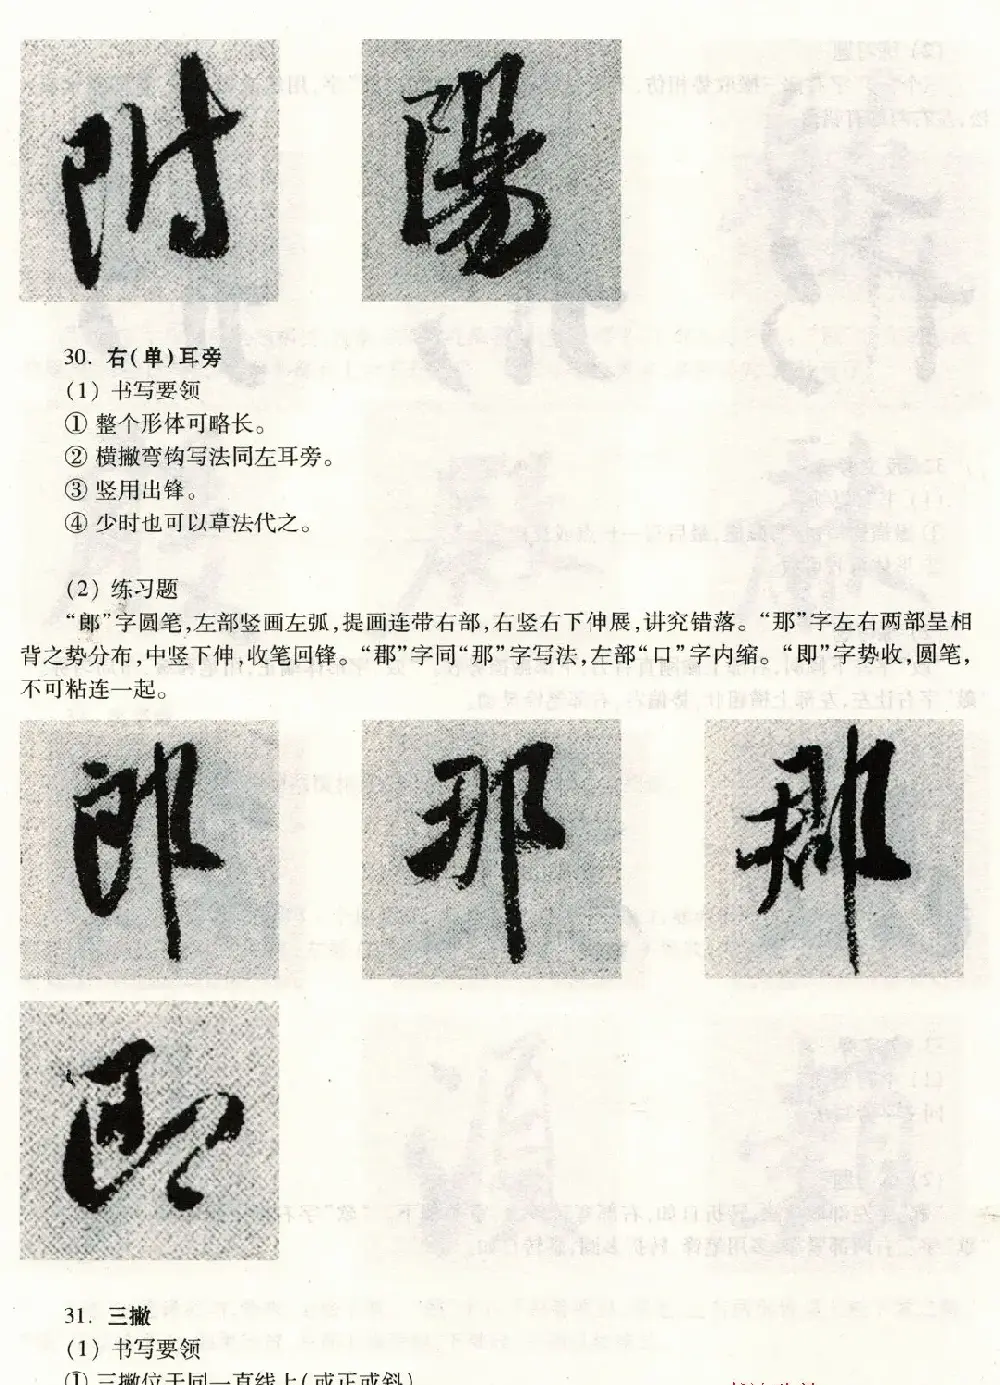 附 陽
30. 右(单)耳旁
(1) 书写要领
① 整个形体可略长。
② 横撇弯钩写法同左耳旁。
③ 竖用出锋。
④ 少时也可以草法代之。
(2) 练习题
“郎”字圆笔,左部竖画左弧,提画连带右部,右竖右下伸展,讲究错落。“那”字左右两部呈相
背之势分布,中竖下伸,收笔回锋。“郡”字同“那”字写法,左部“口”字内缩。“即”字势收,圆笔,
不可粘连一起。
郎 那 郡
即
31. 三撇
(1) 书写要领
① 三撇位于同一直线上(或正或斜)